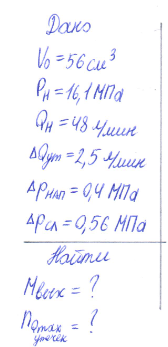 Дано
V₀ = 56 см³
Pн = 16,1 МПа
Qн = 48 л/мин
ΔQут = 2,5 л/мин
ΔPнап = 0,4 МПа
ΔPсл = 0,56 МПа
Найти
Mвых = ?
nQmax утечек = ?